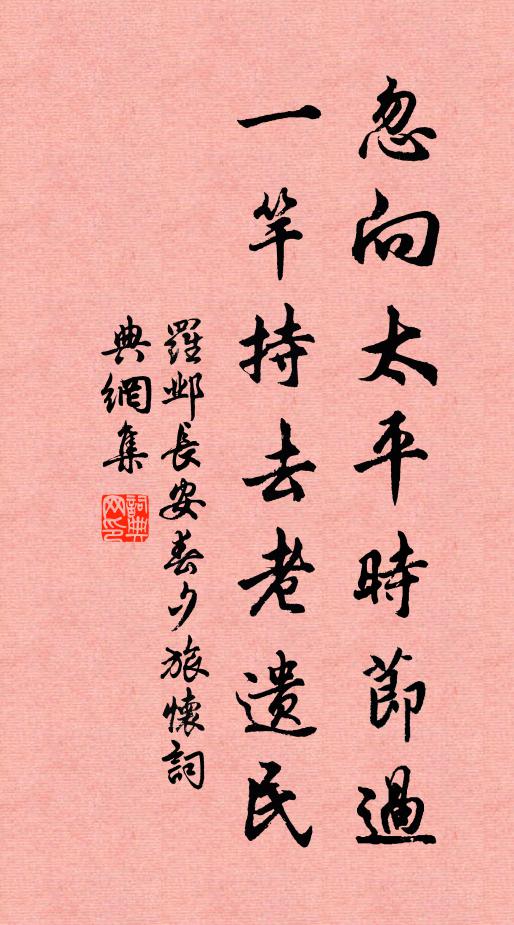 忽向太平時節過
一竿持去老遺民
羅鄴長安春夕旅懷詞
典網集
詞典
网印